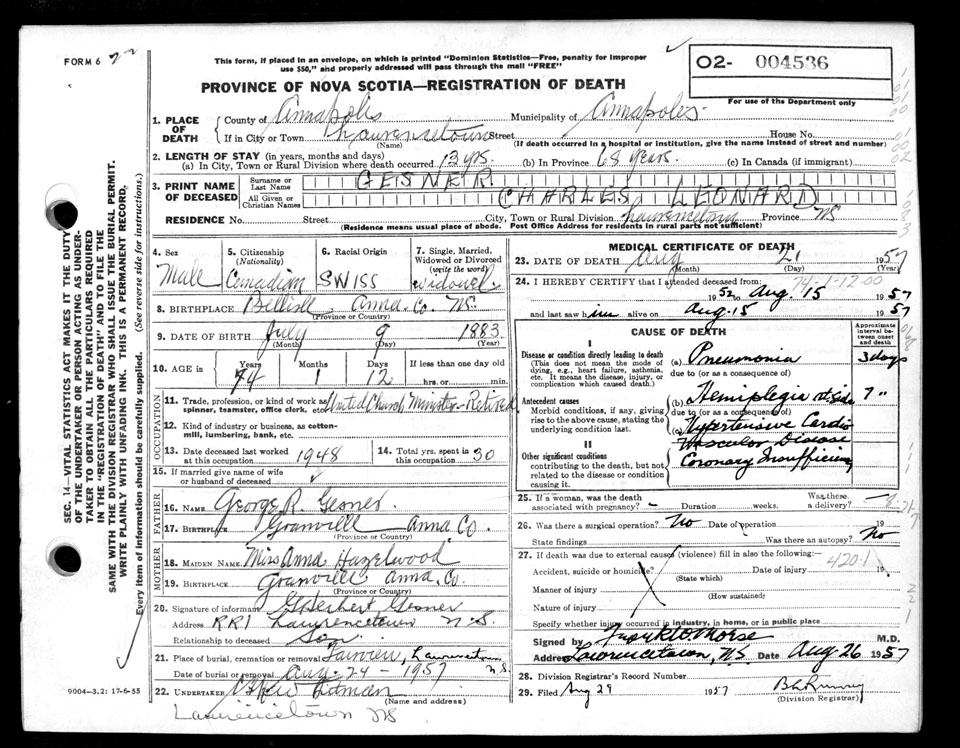 FORM 6
This form, if placed in an envelope, on which is printed "Dominion Statistics—Free, penalty for improper
use $50," and properly addressed will pass through the mail "FREE"
O2- 004536
For use of the Department only
PROVINCE OF NOVA SCOTIA—REGISTRATION OF DEATH
1. PLACE OF DEATH
County of Annapolis Municipality of Annapolis
If in City or Town Lawrencetown Street House No.
(Name) (If death occurred in a hospital or institution, give the name instead of street and number)
2. LENGTH OF STAY (in years, months and days)
(a) In City, Town or Rural Division where death occurred 13 yrs. (b) In Province 68 years. (c) In Canada (if immigrant)
3. PRINT NAME OF DECEASED
Surname or Last Name GESNER
All Given or Christian Names CHARLES LEONARD
RESIDENCE No. Street City, Town or Rural Division Lawrencetown Province NS
(Residence means usual place of abode. Post Office Address for residents in rural parts not sufficient)
4. Sex Male
5. Citizenship (Nationality) Canadian
6. Racial Origin SWISS
7. Single, Married, Widowed or Divorced (write the word) Widowed
8. BIRTHPLACE Anna. Co. NS.
(Province or Country)
9. DATE OF BIRTH July 9 1883
(Month) (Day) (Year)
10. AGE in Years 74 Months 1 Days 12 If less than one day old
hrs. or min.
OCCUPATION
11. Trade, profession, or kind of work as spinner, teamster, office clerk, etc. United Church Minister - Retired
12. Kind of industry or business, as cotton-mill, lumbering, bank, etc.
13. Date deceased last worked at this occupation 1948
14. Total yrs. spent in this occupation 30
15. If married give name of wife or husband of deceased
FATHER
16. Name George R. Gesner
17. Birthplace Granville Anna Co.
(Province or Country)
MOTHER
18. MAIDEN NAME Miss Anna Hazelwood
19. BIRTHPLACE Granville Anna. Co.
(Province or Country)
20. Signature of informant G Herbert Gesner
Address RR1 Lawrencetown N.S.
Relationship to deceased Son
21. Place of burial, cremation or removal Fairview, Lawrencetown N.S.
Date of burial or removal Aug-24-1957
22. UNDERTAKER
(Name and address)
Lawrencetown NS
MEDICAL CERTIFICATE OF DEATH
23. DATE OF DEATH Aug 21 1957
(Month) (Day) (Year)
24. I HEREBY CERTIFY that I attended deceased from:
1952 to Aug. 15 1957
and last saw him alive on Aug. 15 1957
CAUSE OF DEATH
Approximate interval between onset and death
I
Disease or condition directly leading to death
(This does not mean the mode of dying, e.g., heart failure, asthenia, etc. It means the disease, injury, or complication which caused death.)
(a) Pneumonia 3 days
due to (or as a consequence of)
Antecedent causes
Morbid conditions, if any, giving rise to the above cause, stating the underlying condition last.
(b) Hemiplegia rt. side 7 "
due to (or as a consequence of)
(c) Hypertensive Cardio Vascular Disease
II
Other significant conditions
contributing to the death, but not related to the disease or condition causing it.
Coronary Insufficiency
25. If a woman, was the death associated with pregnancy? - Duration weeks. Was there a delivery? -
26. Was there a surgical operation? No Date of operation 19
State findings Was there an autopsy? No
27. If death was due to external causes (violence) fill in also the following:—
420.1
Accident, suicide or homicide? Date of injury 19
(State which)
Manner of injury
(How sustained)
Nature of injury
Specify whether injury occurred in industry, in home, or in public place
Signed by Morse M.D.
Address Lawrencetown, N.S. Date Aug 26 1957
28. Division Registrar's Record Number
29. Filed Aug 29 1957
(Division Registrar)
SEC. 14—VITAL STATISTICS ACT MAKES IT THE DUTY
OF THE UNDERTAKER OR PERSON ACTING AS UNDERTAKER TO OBTAIN ALL THE PARTICULARS REQUIRED
IN THE "REGISTRATION OF DEATH" AND TO FILE THE
SAME WITH THE DIVISION REGISTRAR WHO SHALL ISSUE THE BURIAL PERMIT.
WRITE PLAINLY WITH UNFADING INK. THIS IS A PERMANENT RECORD.
Every item of information should be carefully supplied. (See reverse side for instructions.)
9004-3.2: 17-6-55